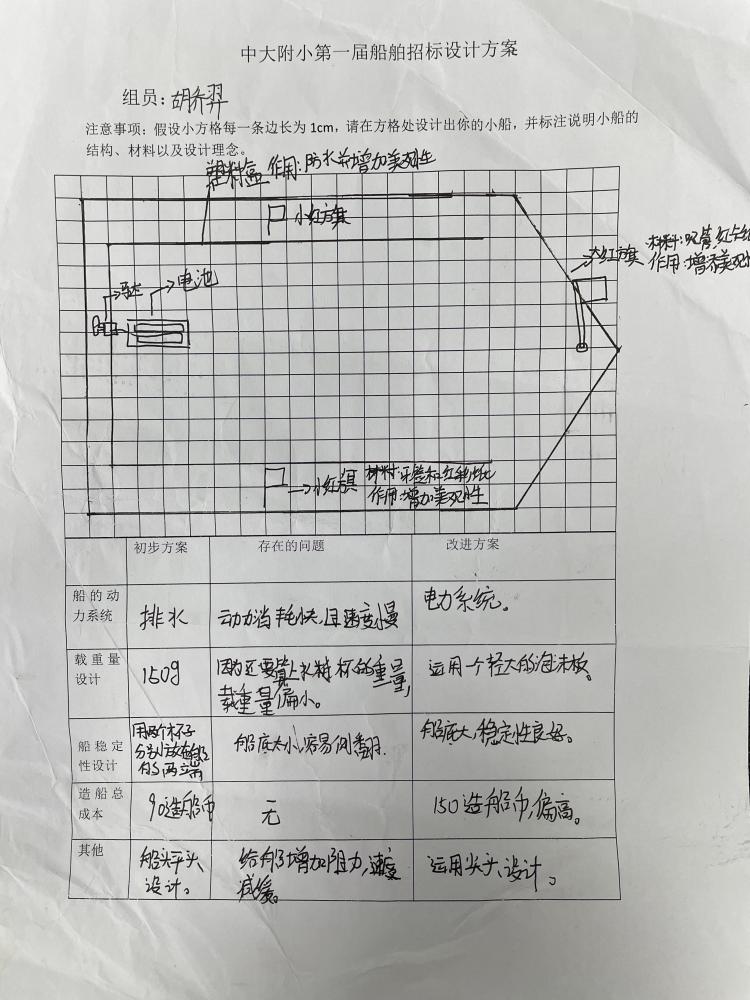 中大附小第一届船舶招标设计方案
组员：胡乔羿
注意事项：假设小方格每一条边长为1cm，请在方格处设计出你的小船，并标注说明小船的
结构、材料以及设计理念。
塑料盒 作用：防水并增加美观性
小红旗
大红旗 材料：吸管，红卡纸
作用：增添美观性
马达
电池
小红旗 材料：牙签和红
作用：增加美观性
初步方案 存在的问题 改进方案
船的动
力系统
排水
动力消耗快，且速度慢
电力系统。
载重量
设计
150g
因为还要算上水和杯的重量，
载重量偏小。
运用一个轻大的泡沫板。
船稳定
性设计
用两个杯子
分别放在船
的两端
船底太小，容易侧翻。
船底大，稳定性良好。
造船总
成本
90造船币
无
150造船币，偏高。
其他
船头平头
设计。
给船增加阻力，速度
减缓。
运用尖头设计。